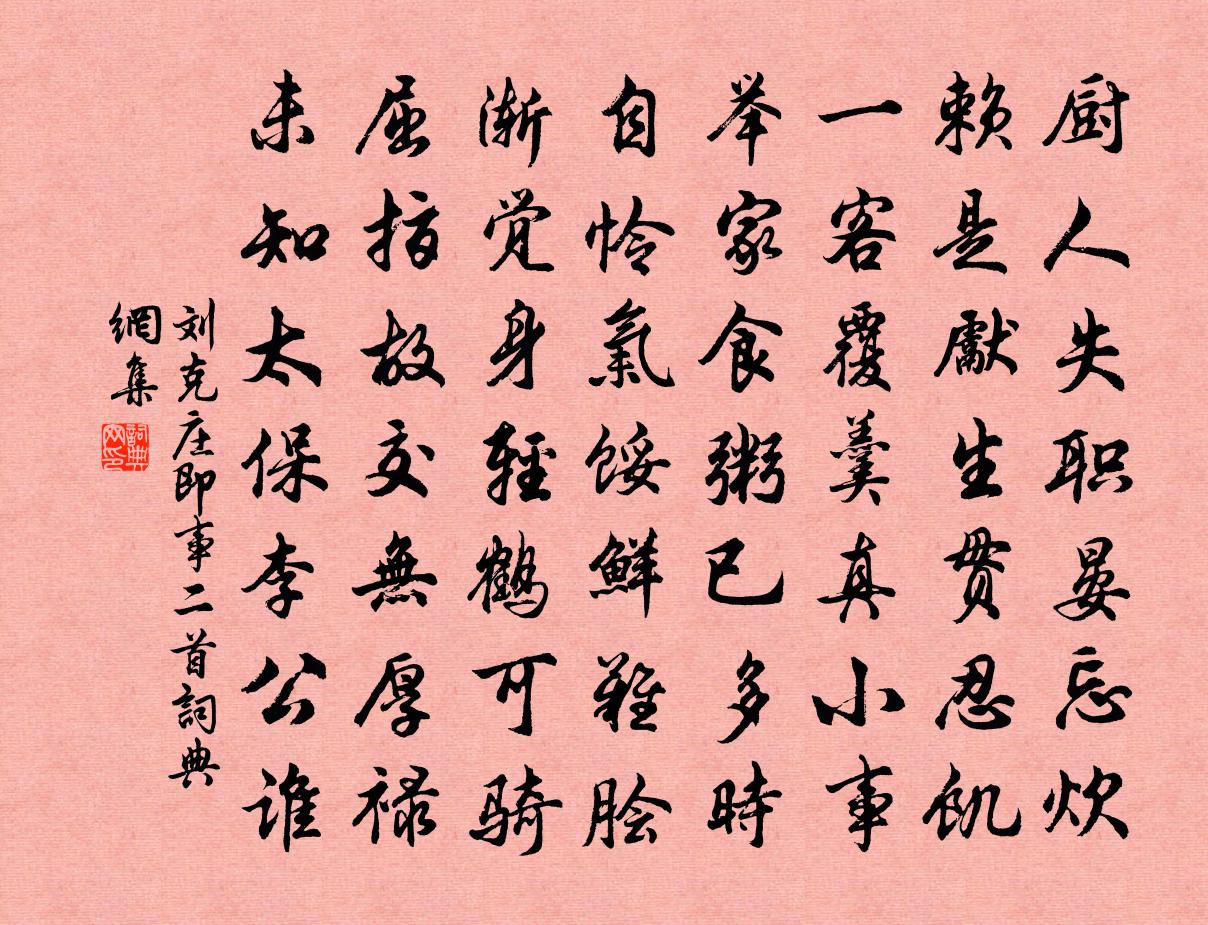 厨人失职晏忘炊
赖是獻生贯忍飢
一客覆羹真小事
举家食粥已多時
自怜氣馁鮮難脍
渐觉身輕鹤可骑
屈指故交無厚禄
未知太保李公谁
刘克庄即事二首詞典
網集
詞典
网印